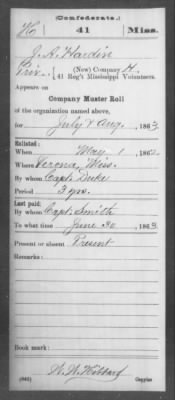 (Confederate.)
H | 41 | Miss.
J. A. Hardin
Priv., (New) Company H,
41 Reg't Mississippi Volunteers.
Appears on
Company Muster Roll
of the organization named above,
for July & Aug., 1863.
Enlisted:
When May 1, 1862
Where Verona, Miss.
By whom Capt. Duke
Period 3 yrs.
Last paid:
By whom Capt. Smith
To what time June 30, 1863
Present or absent Present
Remarks:
Book mark:
(642) Copyist.